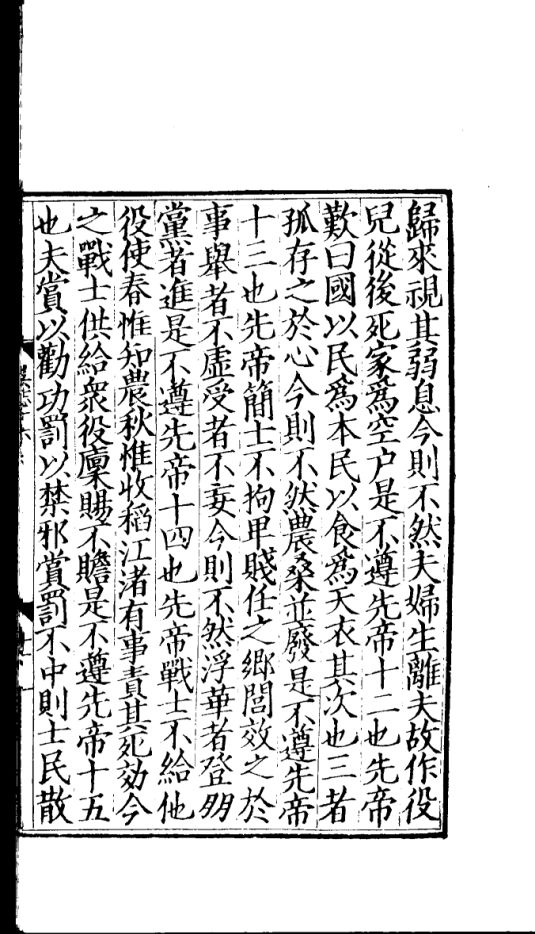 歸來視其弱息今則不然夫婦生離夫故作役
兒從後死家爲空户是不遵先帝十二也先帝
歎曰國以民爲本民以食爲天衣其次也三者
孤存之於心今則不然農桑並廢是不遵先帝
十三也先帝簡士不拘甲賤任之鄉閭效之於
事舉者不虛受者不妄今則不然浮華者登朋
黨者進是不遵先帝十四也先帝戰士不給他
役使春惟知農秋惟收稻江渚有事責其死効今
之戰士供給衆役廩賜不贍是不遵先帝十五
也夫賞以勸功罰以禁邪賞罰不中則士民散